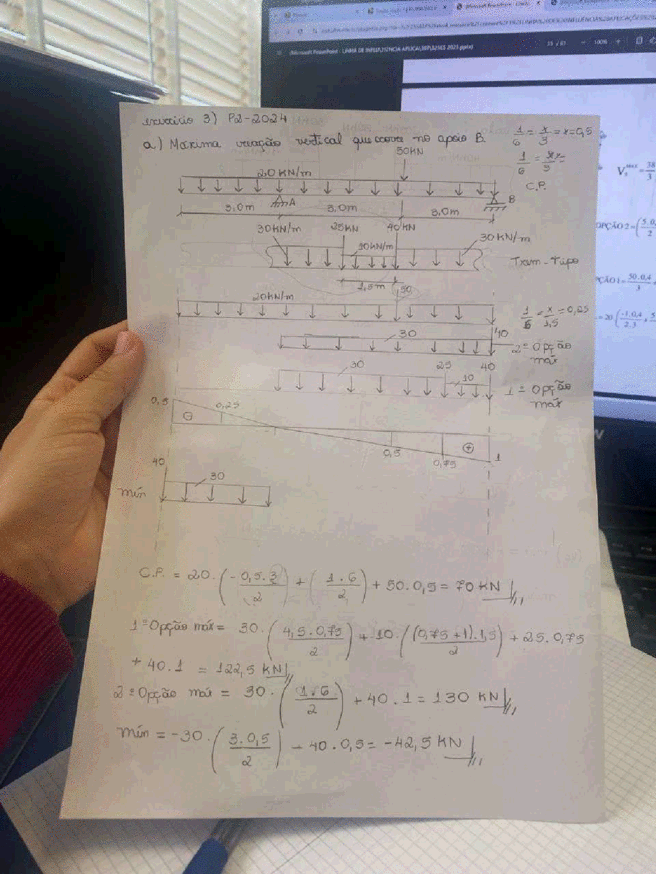 (Microsoft PowerPoint - LINHA DE INFLUÊNCIA
exercício 3) P2-2024
a) Máxima reação vertical que ocorre no apoio B.
1/6 = x/3 = x=0,5
50KN
20KN/m
C.P.
A
B
3.0m 3.0m 3.0m
30KN/m 25KN 40KN 30KN/m
10KN/m
Trem-tipo
1,5m
50
20KN/m
1/6 = x/1,5 = 0,25
30 40
2ª Opção máx
30 25 10 40
1ª Opção máx
0,5 0,25
0,5 0,75 1
40
30
mín
C.P. = 20.(-0,5.3/2) + (1.6/2) + 50.0,5 = 70 KN
1ª Opção máx = 30.(4,5.0,75/2) + 10.((0,75+1).1,5/2) + 25.0,75
+ 40.1 = 122,5 KN
2ª Opção máx = 30.(1.6/2) + 40.1 = 130 KN
mín = -30.(3.0,5/2) - 40.0,5 = -42,5 KN